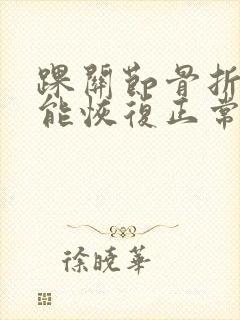 踝關節骨折
能恢復正常
徐曉華